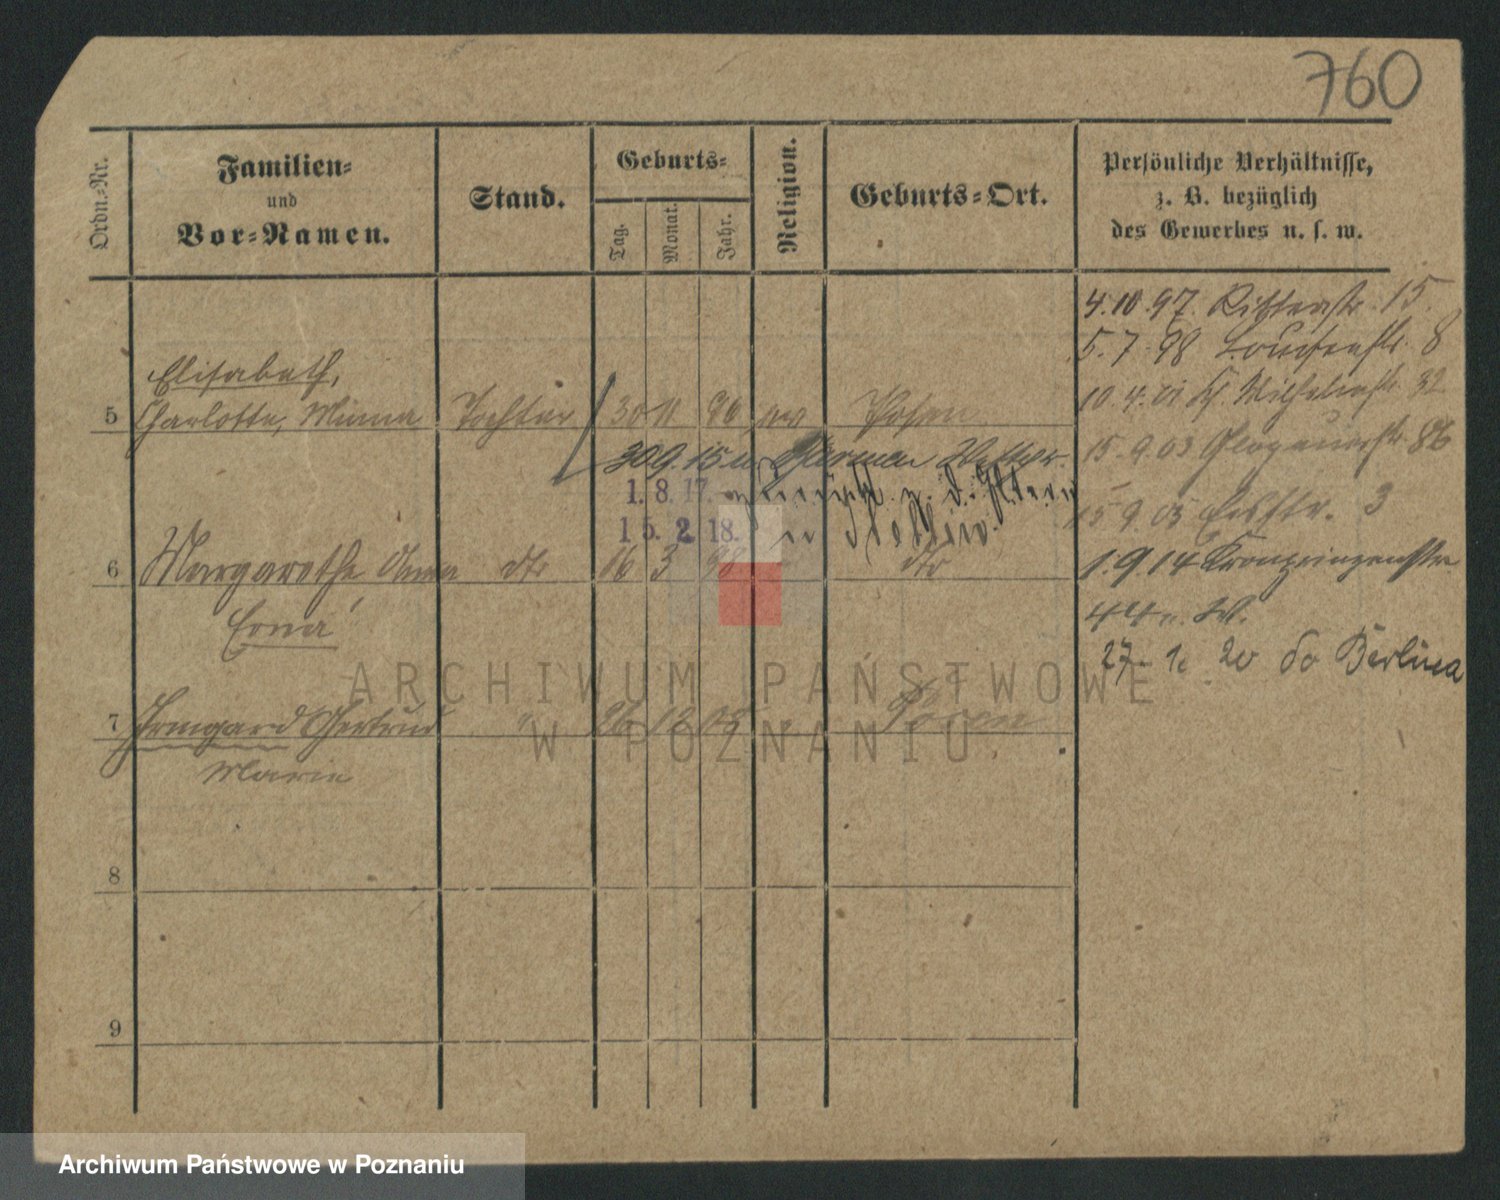 760
Ordn.-Nr.
Familien-
und
Vor-Namen.
Stand.
Geburts-
Tag.
Monat.
Jahr.
Religion.
Geburts-Ort.
Persönliche Verhältnisse,
z. B. bezüglich
des Gewerbes u. s. w.
4.10.97 Ritterstr. 15.
5.7.98 Louisenstr. 8
Elisabeth,
5 Charlotte, Minna Tochter 30 11 96 ev Posen
10.4.01 Wilhelmstr. 32
30.9.15 n.
15.9.03 Glogauerstr. 86
1.8.17. z. d. Eltern
15.9.05 3
15.2.18. n Stettin.
6 Margarethe, Anna dto 16 3 98 dto
1.9.14 Kronprinzenstr.
Erna
44 n. W.
27. 1. 20 Berlin
ARCHIWUM PAŃSTWOWE
7 Irmgard Gertrud " 26 12 05 " Posen
W POZNANIU
Marie
8
9
Archiwum Państwowe w Poznaniu